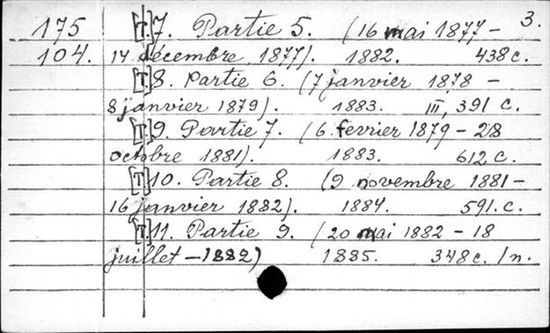 3.
175 [T.]7. Partie 5. (16 mai 1877 –
104. 14 décembre 1877). 1882. 438 c.
[T.]8. Partie 6. (7 janvier 1878 –
8 janvier 1879). 1883. III, 391 c.
[T.]9. Partie 7. (6 fevrier 1879 – 28
octobre 1881). 1883. 612 c.
[T.]10. Partie 8. (9 novembre 1881 –
16 janvier 1882). 1884. 591. c.
[T.]11. Partie 9. (20 mai 1882 – 18
juillet – 1882) 1885. 348 c. /n.